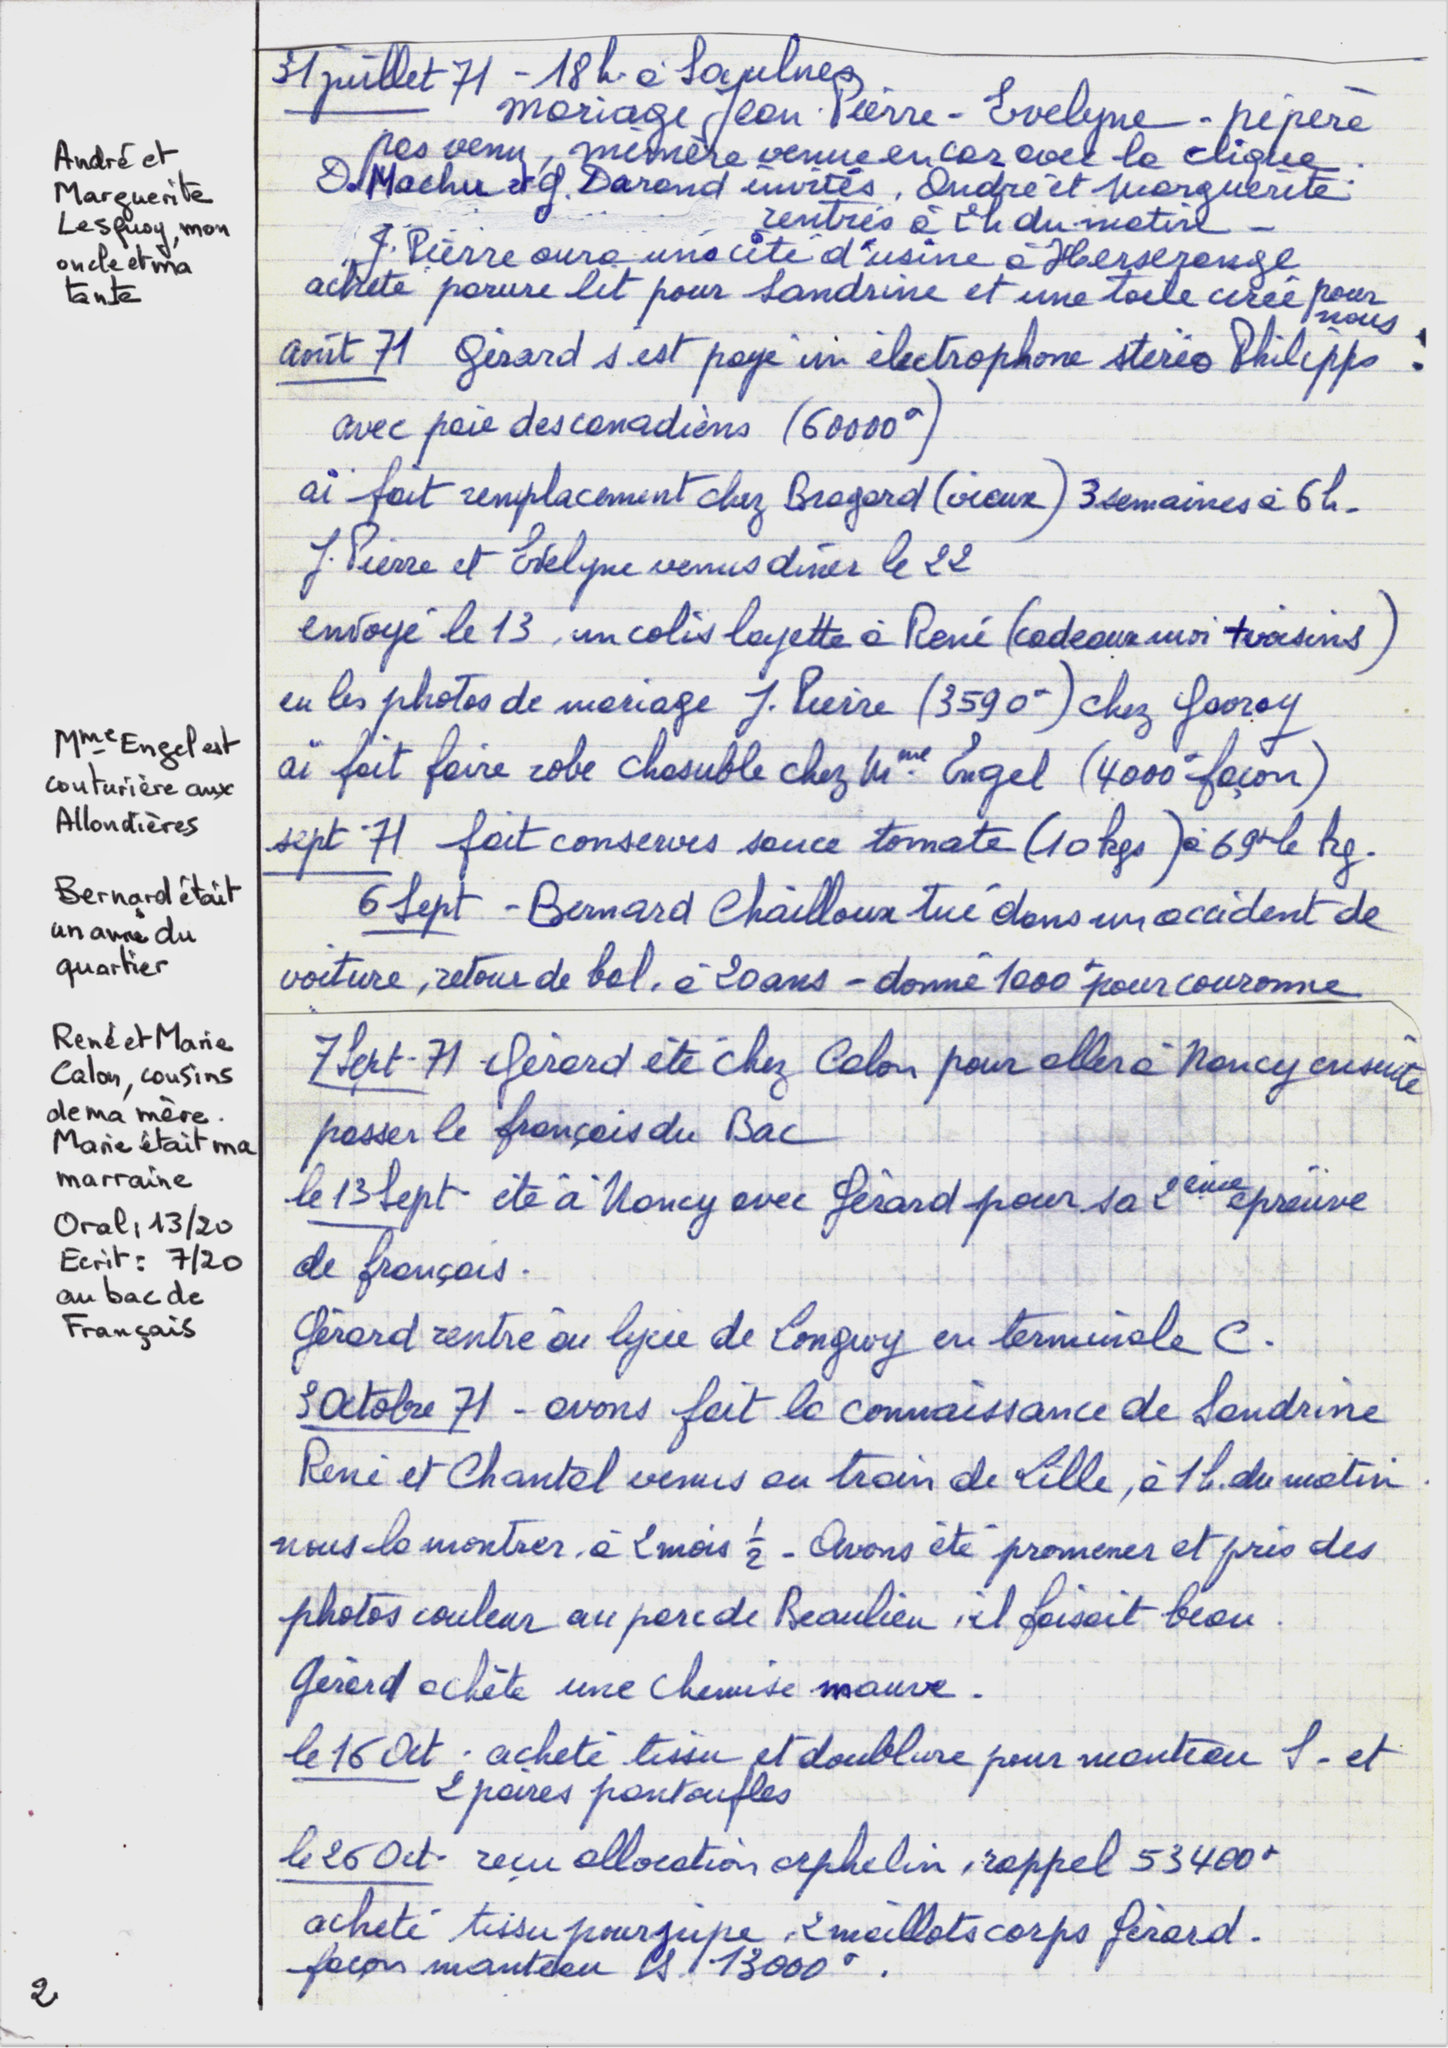 31 juillet 71 - 18 h. à Saulnes
mariage Jean-Pierre - Evelyne - pépère
pas venu, mémère venue en car avec la clique.
D. Machu et G. Darand invités. André et Marguerite
rentrés à 2h du matin -
J. Pierre aura une cité d'usine à Herserange
acheté parure lit pour Sandrine et une toile cirée pour
nous
août 71 Gérard s'est payé un électrophone stéréo Philipps :
avec paie des canadiens (60000°)
ai fait remplacement chez Bragard (vieux) 3 semaines à 6 h.
J. Pierre et Evelyne venus dîner le 22
envoyé le 13, un colis layette à René (cadeaux moi + voisins)
eu les photos de mariage J. Pierre (3590°) chez
ai fait faire robe chasuble chez Mme Engel (4000° façon)
sept 71 fait conserves sauce tomate (10 kgs) à 69° le kg.
6 Sept - Bernard Chailloux tué dans un accident de
voiture, retour de bal, à 20 ans - donné 1000° pour couronne
7 Sept. 71 Gérard été chez Calon pour aller à Nancy ensuite
passer le français du Bac
le 13 Sept été à Nancy avec Gérard pour sa 2ème épreuve
de français.
Gérard rentre au lycée de Longwy en terminale C.
3 Octobre 71 - avons fait la connaissance de Sandrine
René et Chantal venus au train de Lille, à 1 h. du matin
nous la montrer, à 2 mois ½ - Avons été promener et pris des
photos couleur au parc de Beaulieu, il faisait beau.
Gérard achète une chemise mauve.
le 16 Oct. acheté tissu et doublure pour manteau S - et
2 paires pantoufles
le 26 Oct. reçu allocation orphelin, rappel 53400°
acheté tissu pour jupe, 2 maillots corps Gérard.
façon manteau S 13000°.
André et
Marguerite
Lesquoy, mon
oncle et ma
tante
Mme Engel est
couturière aux
Allondières
Bernard était
un ami du
quartier
René et Marie
Calon, cousins
de ma mère.
Marie était ma
marraine
Oral, 13/20
Ecrit : 7/20
au bac de
Français
2